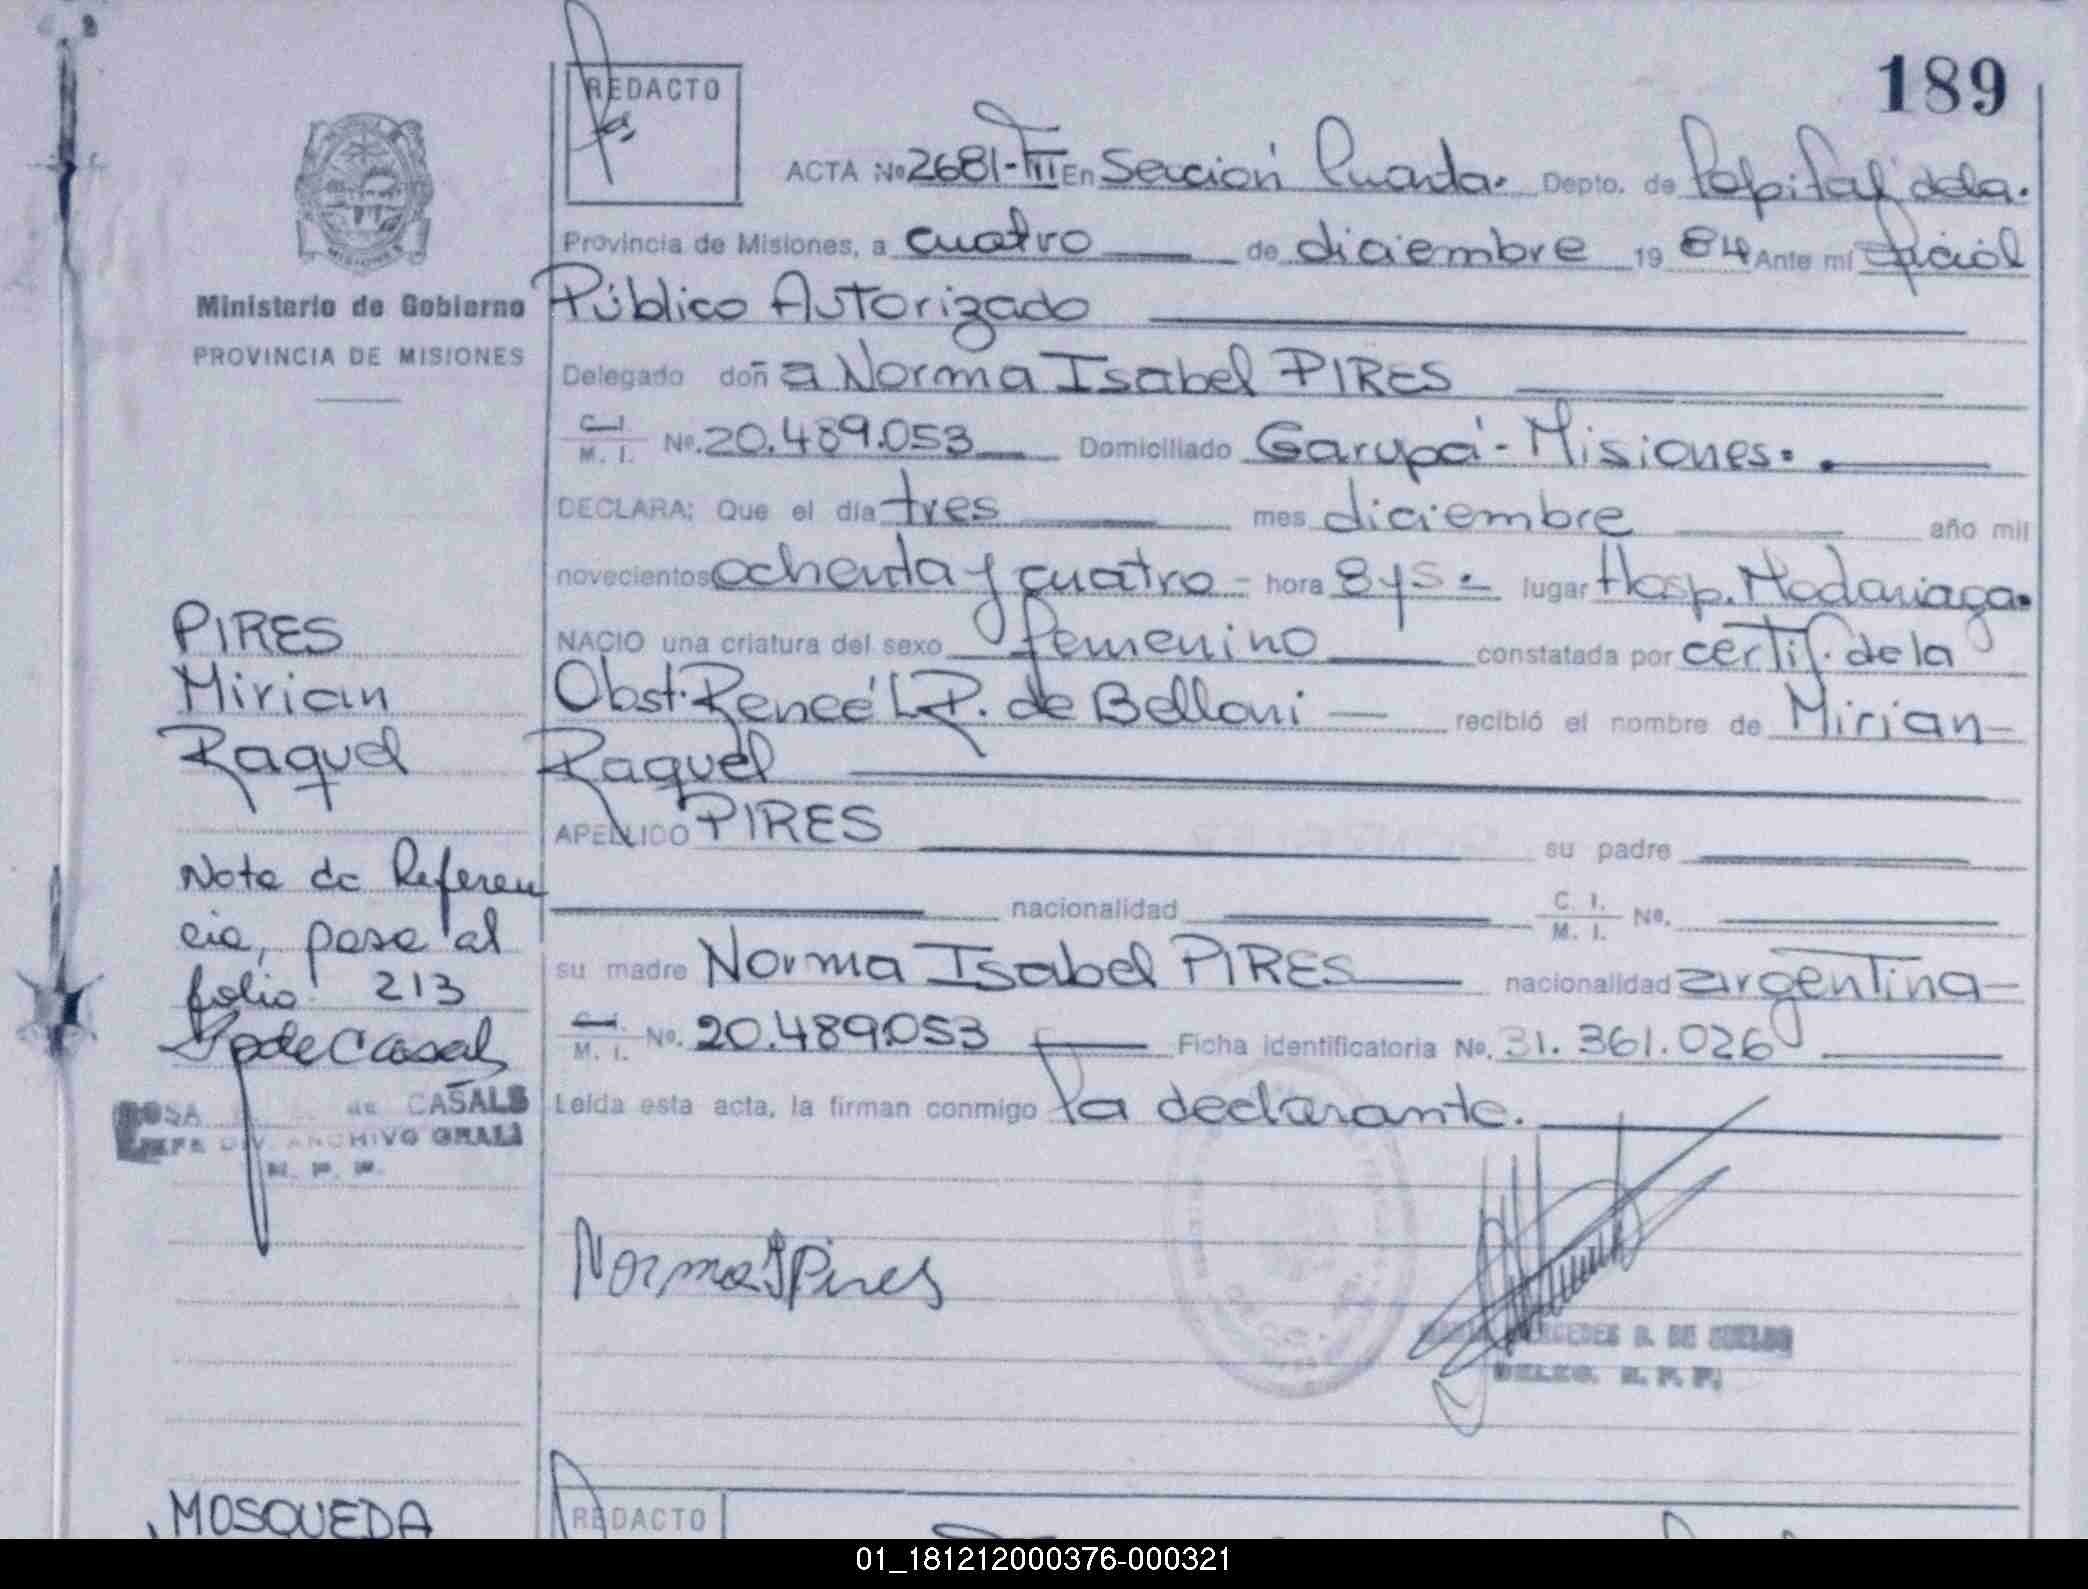 189
REDACTO
ACTA Nº 2681-III En Sección Cuarta. Depto. de Capital de la.
Provincia de Misiones, a cuatro de diciembre 19 84 Ante mí Oficial
Público Autorizado
Delegado doñ a Norma Isabel PIRES
C. I. M. I. Nº. 20.489.053 Domiciliado Garupá - Misiones.
DECLARA: Que el día tres mes diciembre año mil
novecientos ochenta y cuatro - hora 8 y 5 - lugar Hosp. Madariaga.
NACIO una criatura del sexo femenino constatada por certif. de la
Obst. Reneé L R. de Belloni recibió el nombre de Mirian
Raquel
APELLIDO PIRES su padre
nacionalidad C. I. M. I. Nº.
su madre Norma Isabel PIRES nacionalidad argentina
C. I. M. I. Nº. 20.489.053 Ficha identificatoria Nº. 31.361.026
Leída esta acta, la firman conmigo la declarante.
Norma I Pires
MERCEDES B. DE
DELEG. R. P. P.
Ministerio de Gobierno
PROVINCIA DE MISIONES
PIRES
Mirian
Raquel
Nota de Referen
cia, pasa al
folio 213
de Casals
ROSA de CASALS
JEFE DIV. ARCHIVO GRAL
R. P. P.
MOSQUEDA
REDACTO
01_181212000376-000321